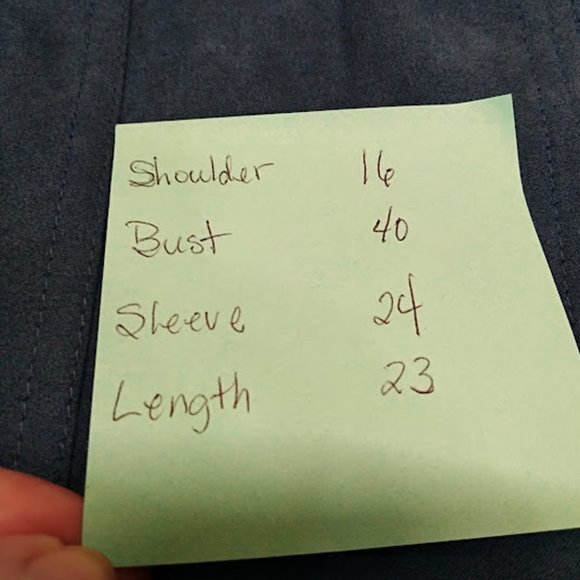 Shoulder 16
Bust 40
Sleeve 24
Length 23